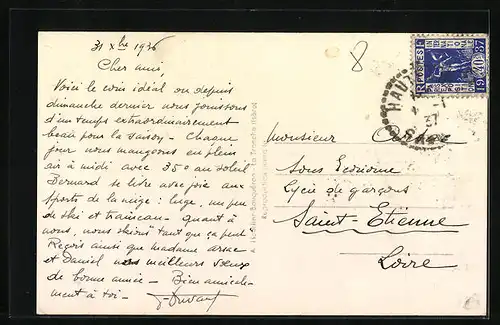 31 Xbre 1936
Cher ami,
Voici le coin idéal où depuis
dimanche dernier nous jouissons
d'un temps extraordinairement
beau pour la saison - Chaque
jour nous mangeons en plein
air à midi avec 35° au soleil
Bernard se livre avec joie aux
sports de la neige : luge, un peu
de ski et traineau - quant à
nous, nous skions tant que ça peut
Reçois ainsi que madame
et Daniel nos meilleurs vœux
de bonne année - Bien amicale-
ment à toi -
8
Monsieur
Sous Econome
Lycée de garçons
Saint-Etienne
Loire
POSTES
19 37
HAU
37